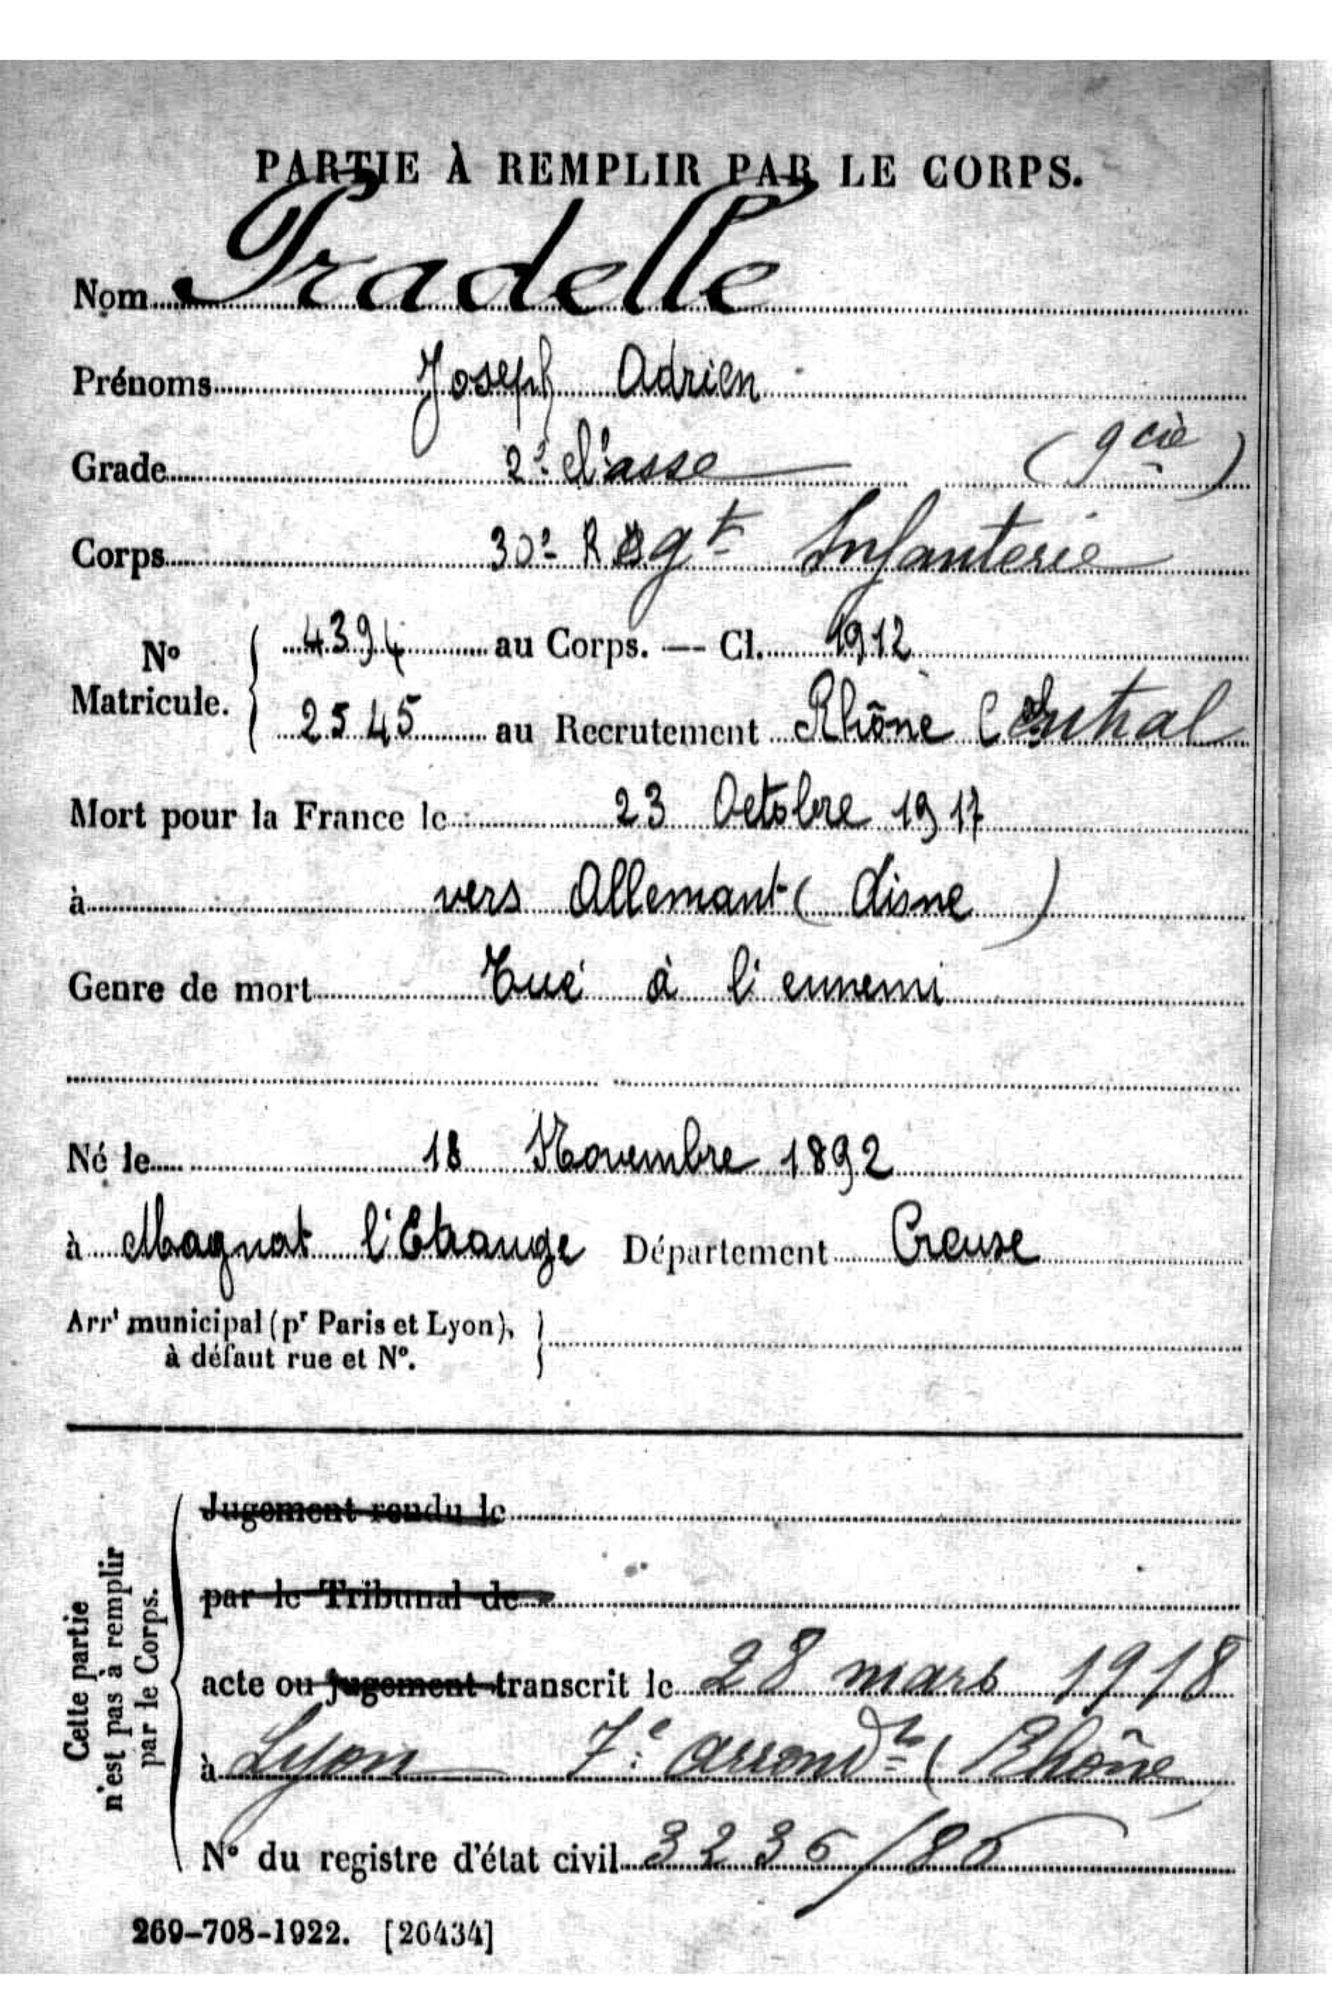 PARTIE À REMPLIR PAR LE CORPS.
Nom Pradelle
Prénoms Joseph Adrien
Grade 2e Classe (9 cie)
Corps 30e Regt Infanterie
No Matricule. { 4394 au Corps. — Cl. 1912
2545 au Recrutement Rhône Central
Mort pour la France le 23 Octobre 1917
à vers Allemant (Aisne)
Genre de mort Tué à l'ennemi
Né le 18 Novembre 1892
à Magnat l'Etrange Département Creuse
Arrt municipal (pr Paris et Lyon), }
à défaut rue et No.
Cette partie
n'est pas à remplir
par le Corps.
Jugement rendu le
par le Tribunal de
acte ou jugement transcrit le 28 mars 1918
à Lyon 7e arrondt (Rhône)
No du registre d'état civil 3236/86
269-708-1922. [26434]